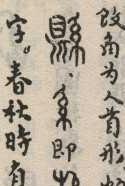 角为人首形
縣、系即
字。春秋時有